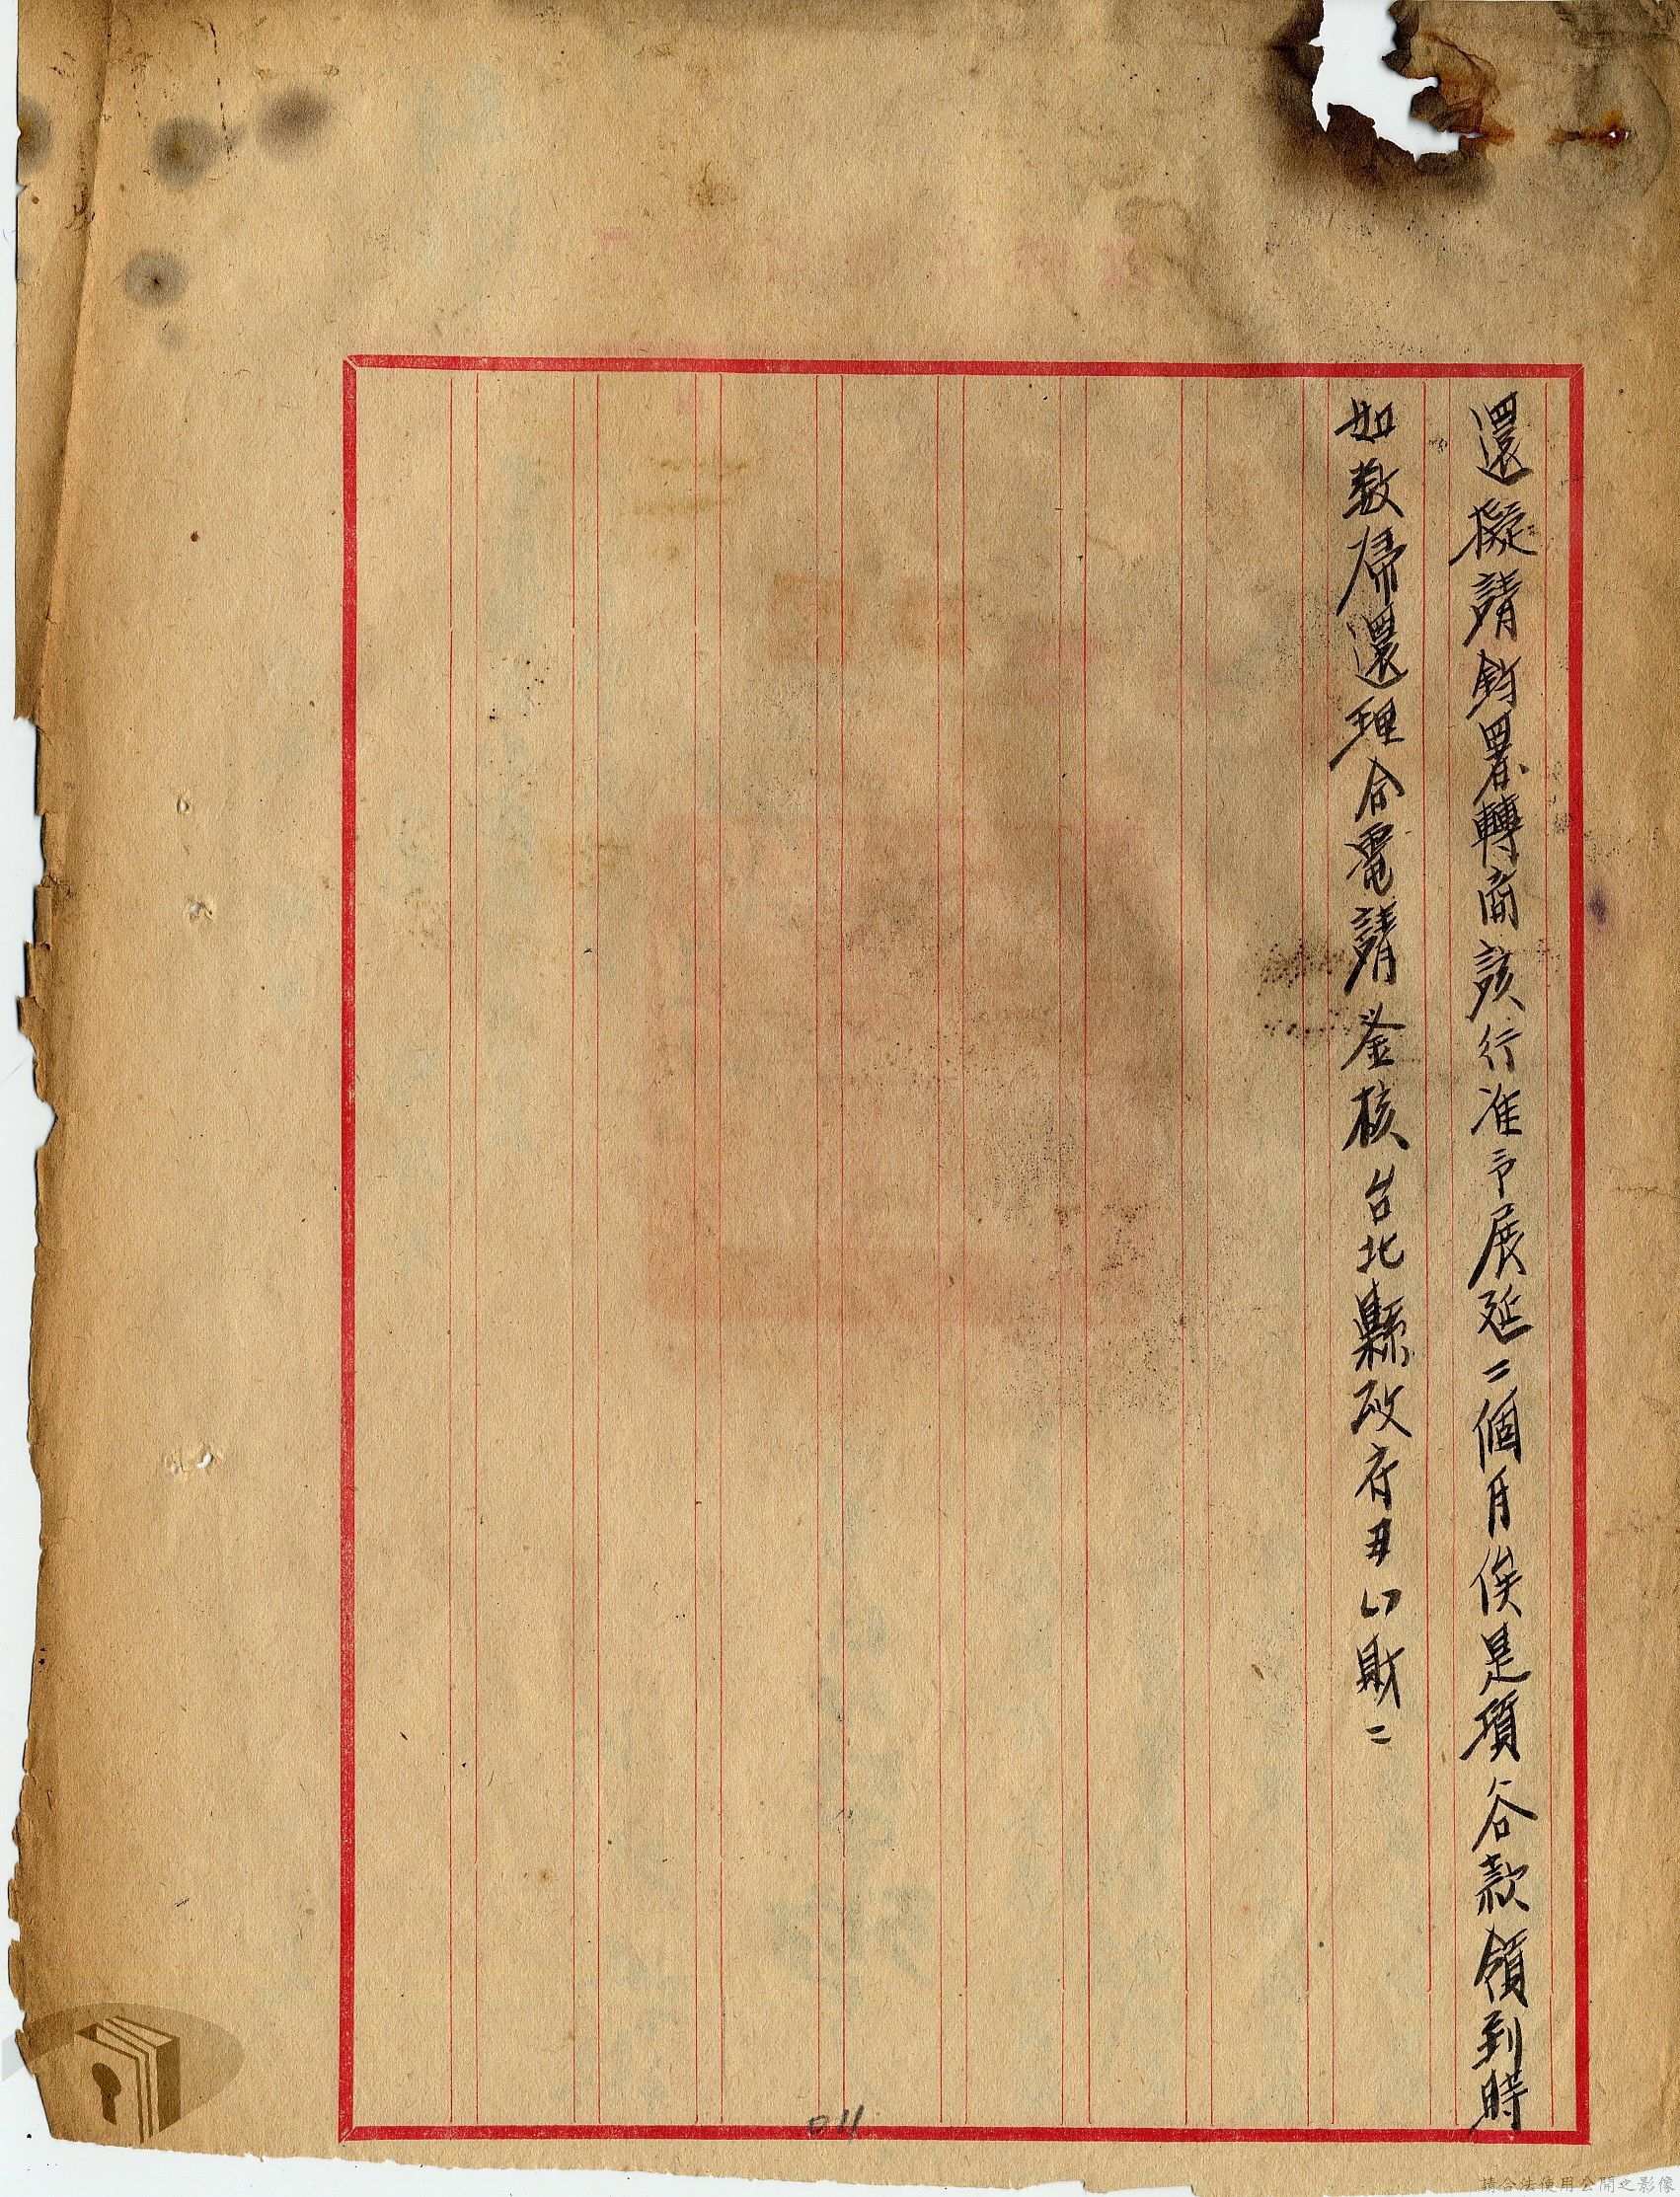 還擬請鈞署轉商該行准予展延二個月俟是項谷款領到時
如数歸還理合電請鉴核台北縣政府丑
財二
011
請合法使用公開之影像